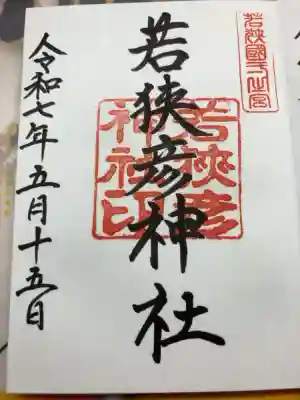 若狭國一之宮
若狭彦神社
若狭彦
神社印
令和七年五月十五日